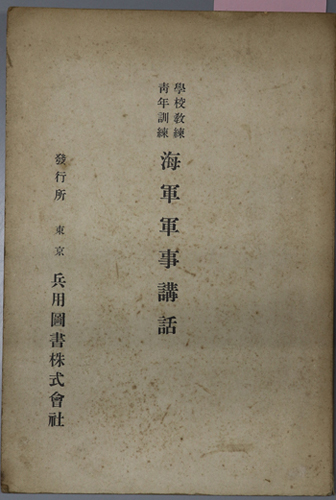 學校教練
青年訓練
海軍軍事講話
發行所 東京 兵用圖書株式會社